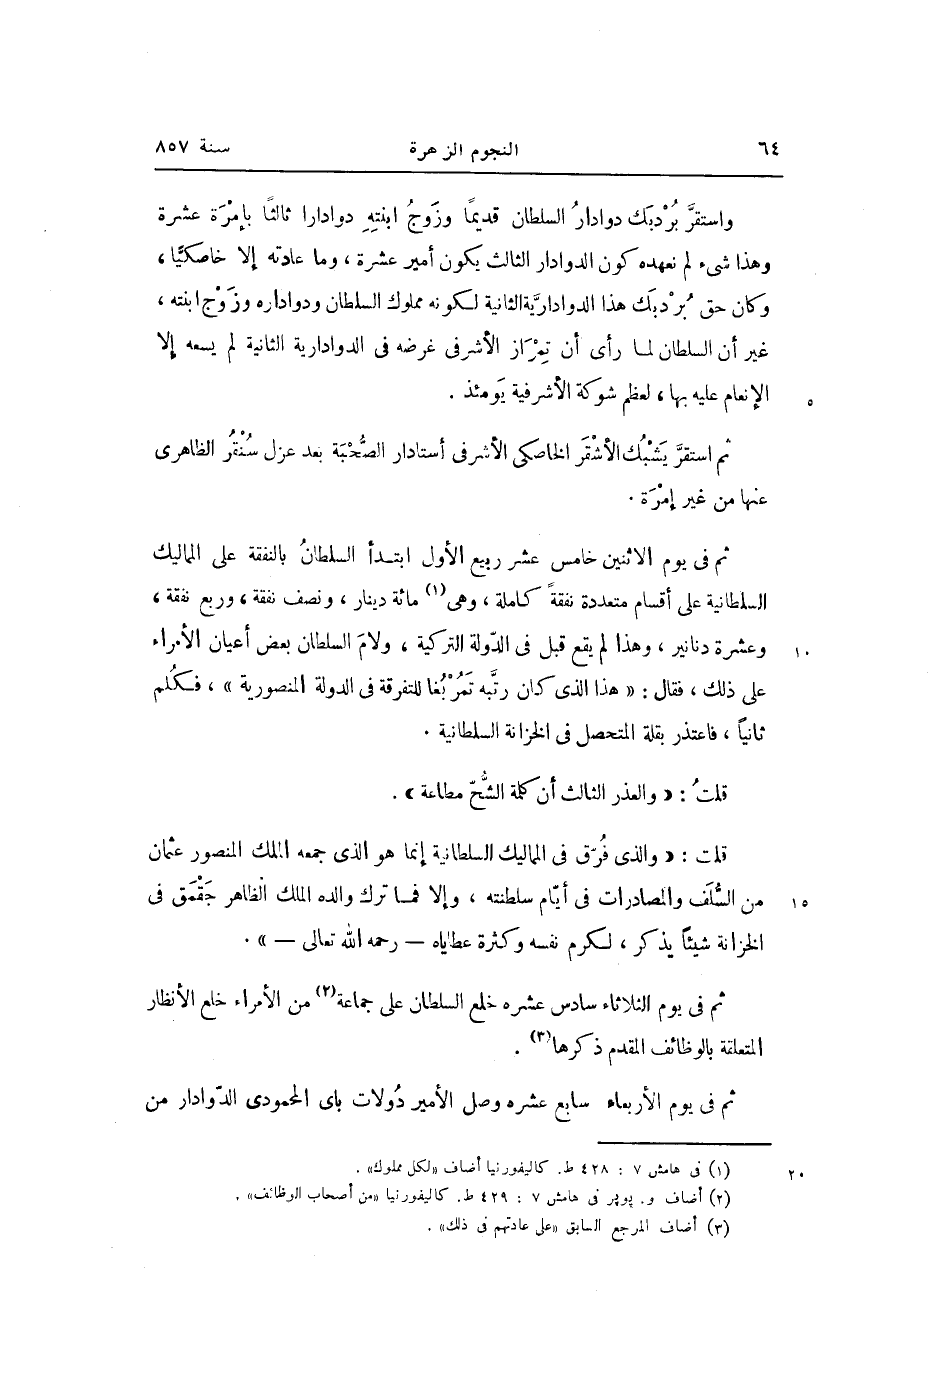 ٦٤ النجوم الزهرة سنة ٨٥٧
واستقرَّ بُرْدبَك دوادارُ السلطان قديمًا وزَوجُ ابنتِهِ دوادارا ثالثًا بإمْرَة عشرة
وهذا شىء لم نعهده كون الدوادار الثالث يكون أمير عشرة ، وما عادته إلا خاصكيًّا ،
وكان حق بُردبَك هذا الدواداريَّةالثانية لكونه مملوك السلطان ودواداره وزَوْج ابنته ،
غير أن السلطان لما رأى أن تِمْرَاز الأشرفى غرضه فى الدوادارية الثانية لم يسعه إلا
الإنعام عليه بها ، لعظم شوكة الأشرفية يَومئذ . ٥
ثم استقرَّ يَشْبُك الأشْقَر الخاصكى الأشرفى أستادار الصُّحْبَة بعد عزل سُنْقُر الظاهرى
عنها من غير إمْرَة .
ثم فى يوم الاثنين خامس عشر ربيع الأول ابتدأ السلطانُ بالنفقة على المماليك
السلطانية على أقسام متعددة نفقةً كاملة ، وهى(١) مائة دينار ، ونصف نفقة ، وربع نفقة ،
وعشرة دنانير ، وهذا لم يقع قبل فى الدّولة التركية ، ولامَ السلطان بعض أعيان الأمراء ١٠
على ذلك ، فقال : « هذا الذى كان رتَّبه تَمُرْبُغا للتفرقة فى الدولة المنصورية » ، فكُلم
ثانياً ، فاعتذر بقلة المتحصل فى الخزانة السلطانية .
قلتُ : « والعذر الثالث أن كلمة الشُّحّ مطاعة » .
قلت : « والذى فُرّق فى المماليك السلطانية إنما هو الذى جمعه الملك المنصور عثمان
من السُّلَف والمصادرات فى أيّام سلطنته ، وإلا فما ترك والده الملك الظاهر جَقْمَق فى ١٥
الخزانة شيئاً يذكر ، لكرم نفسه وكثرة عطاياه — رحمه الله تعالى — » .
ثم فى يوم الثلاثاء سادس عشره خلع السلطان على جماعة(٢) من الأمراء خلع الأنظار
المتعلقة بالوظائف المقدم ذكرها(٣) .
ثم فى يوم الأربعاء سابع عشره وصل الأمير دُولات باى المحمودى الدّوادار من
(١) فى هامش ٧ : ٤٢٨ ط. كاليفورنيا أضاف «لكل مملوك» . ٢٠
(٢) أضاف و. پوپر فى هامش ٧ : ٤٢٩ ط. كاليفورنيا «من أصحاب الوظائف» .
(٣) أضاف المرجع السابق «على عادتهم فى ذلك» .